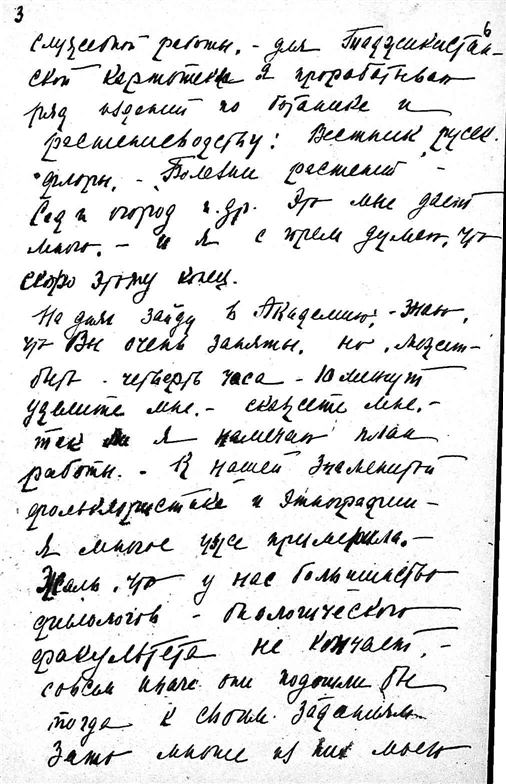 3
6
служебной работы. - для Таджикистан-
ской картотеки я прорабатываю
ряд изданий по ботанике и
растениеводству: Вестник русск.
флоры, - Болезни растений -
Сад и огород и др. Это мне дает
много. - и я с горем думаю, что
скоро этому конец.
На днях зайду в Академию, - знаю,
что Вы очень заняты, но, может-
быть - четверть часа - 10 минут
уделите мне. - скажете мне, -
так ли я намечаю план
работы. - К нашей знаменитой
фольклористике и этнографии -
я многое уже примерила. -
Жаль, что у нас большинство
филологов - биологического
факультета не кончает, -
совсем иначе они подошли бы
тогда к своим заданиям.
Зато многие из них